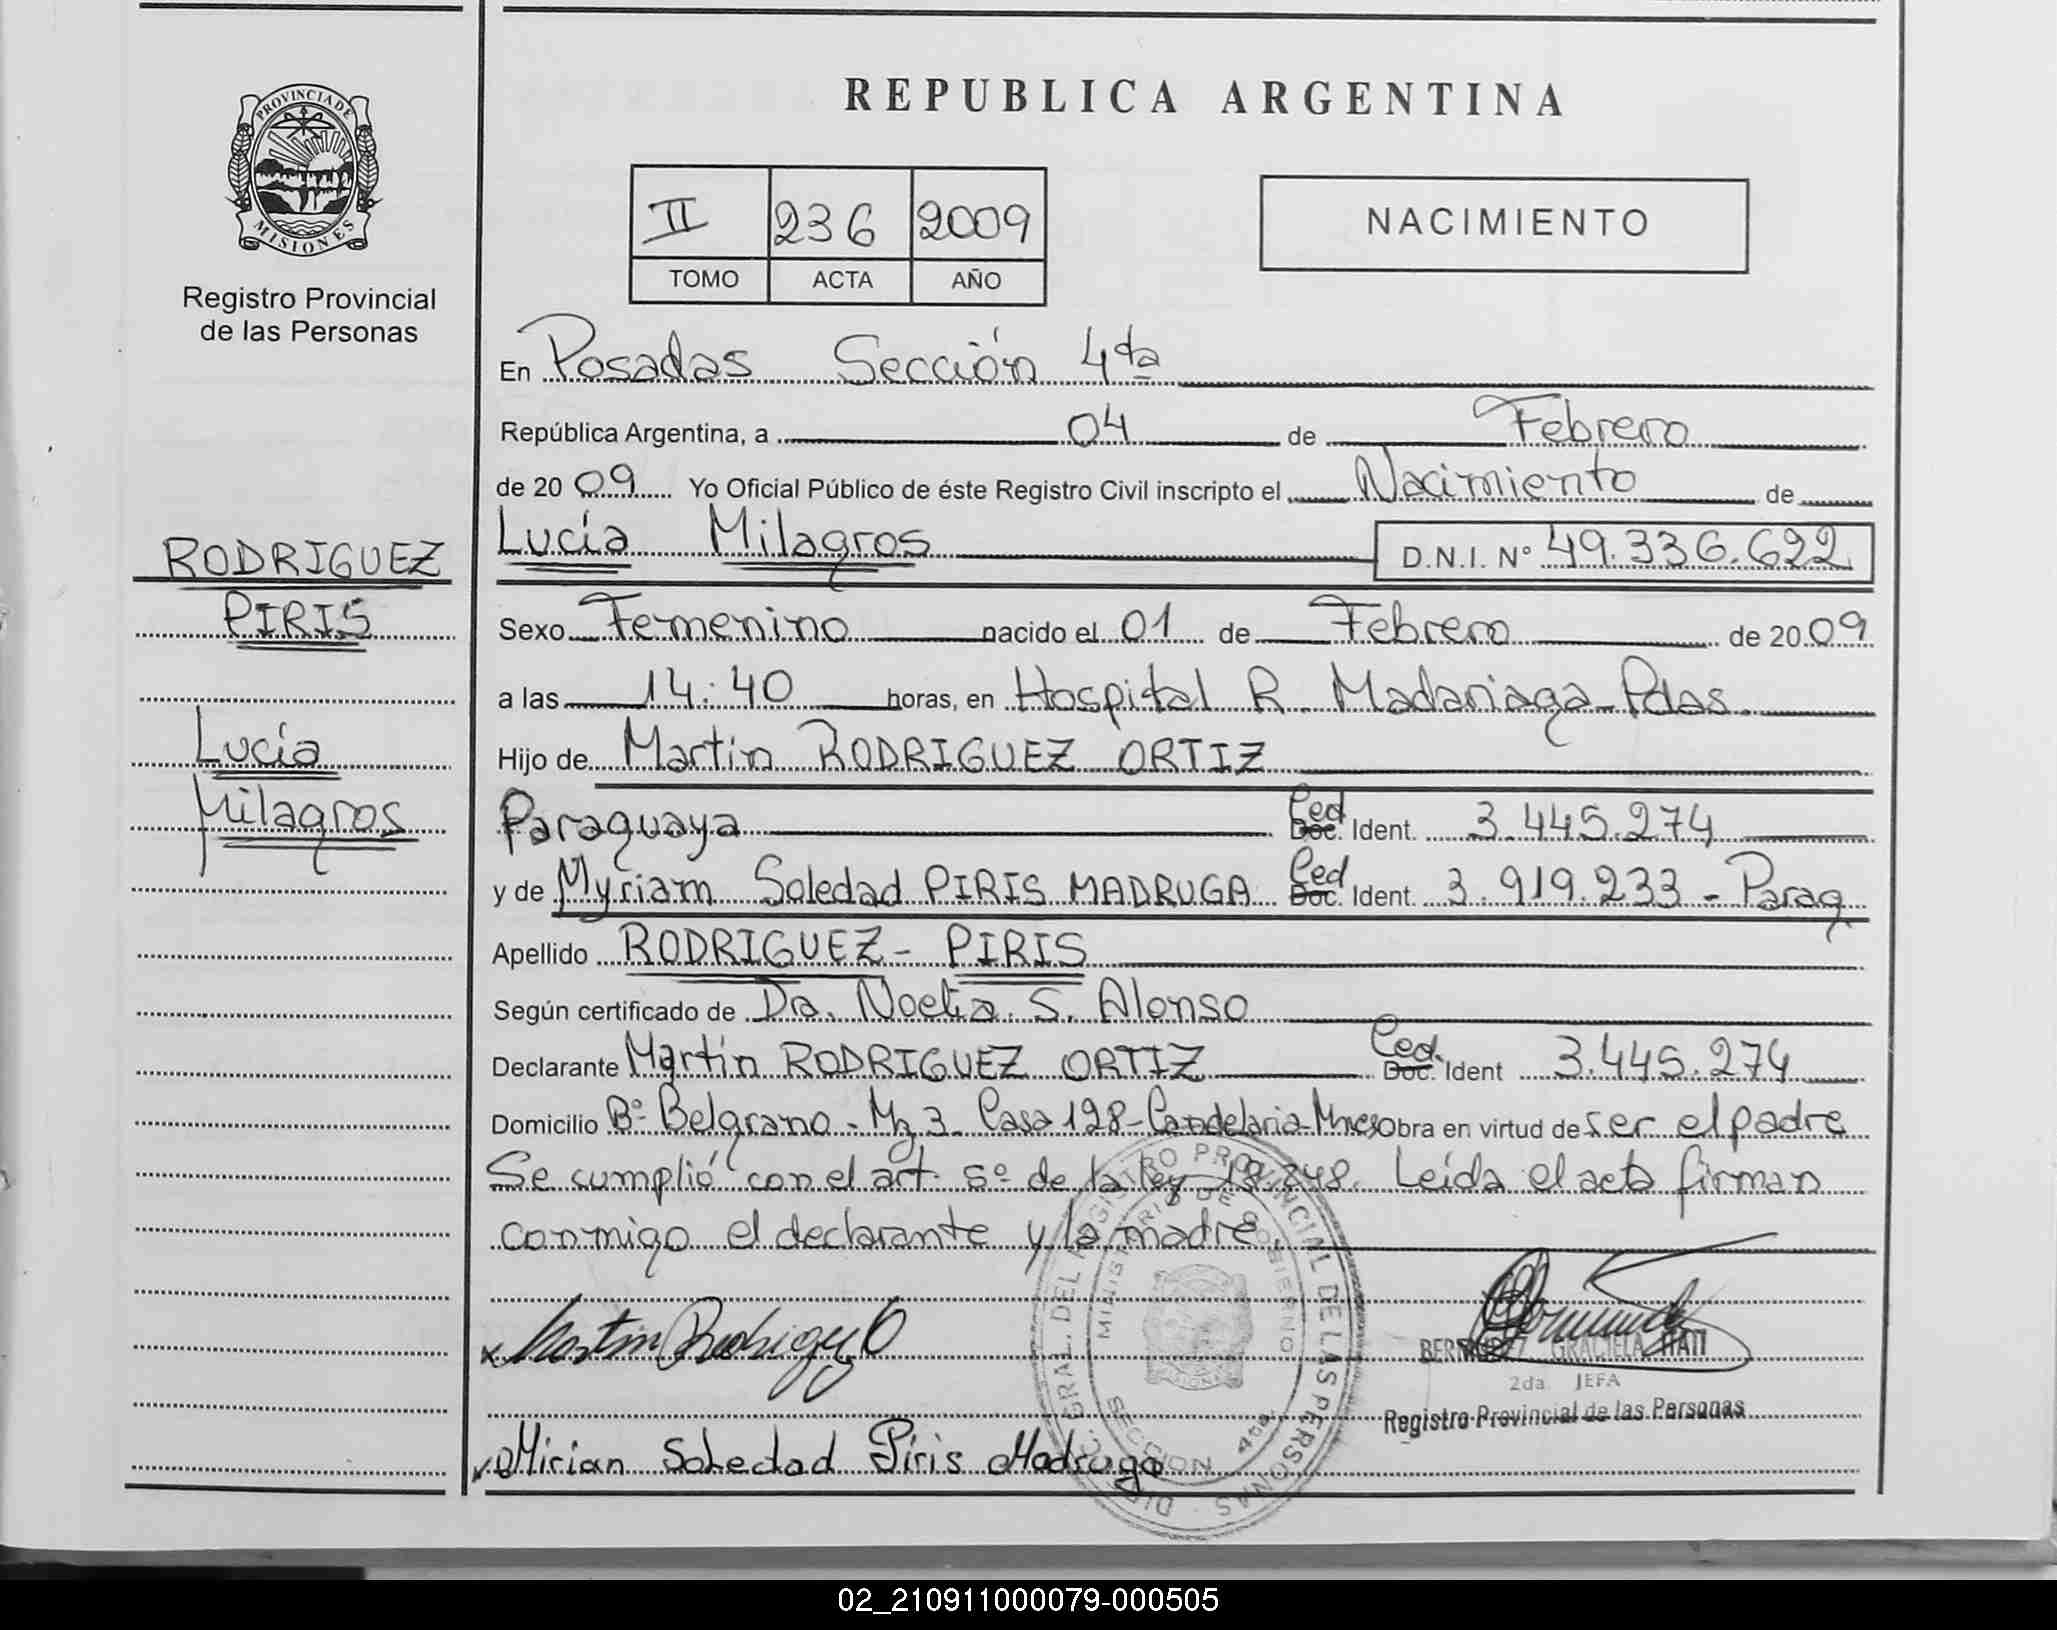 PROVINCIA DE
MISIONES
Registro Provincial
de las Personas
RODRIGUEZ
PIRIS
Lucía
Milagros
REPUBLICA ARGENTINA
II 236 2009
TOMO ACTA AÑO
NACIMIENTO
En Posadas Sección 4ta
República Argentina, a 04 de Febrero
de 2009 Yo Oficial Público de éste Registro Civil inscripto el Nacimiento de
Lucía Milagros D.N.I. Nº 49.336.622
Sexo Femenino nacido el 01 de Febrero de 2009
a las 14:40 horas, en Hospital R. Madariaga Pdas.
Hijo de Martin RODRIGUEZ ORTIZ
Paraguaya Ced Doc. Ident. 3.445.274
y de Myriam Soledad PIRIS MADRUGA Ced Doc. Ident. 3.919.233 - Parag
Apellido RODRIGUEZ - PIRIS
Según certificado de Dra. Noelia S. Alonso
Declarante Martín RODRIGUEZ ORTIZ Ced. Doc. Ident 3.445.274
Domicilio Bº Belgrano - Mz 3 Casa 128 - Candelaria - Mnes Obra en virtud de ser el padre
Se cumplió con el art. 5º de la ley 18.248. Leída el acta firman
conmigo el declarante y la madre.
x Martin Rodriguez O
BERMUDEZ GRACIELA ITATI
2da. JEFA
Registro Provincial de las Personas
x Mirian Soledad Piris Madruga
DIRC. GRAL. DEL REGISTRO PROVINCIAL DE LAS PERSONAS
MINISTERIO DE GOBIERNO
SECCION 4ta.
02_210911000079-000505